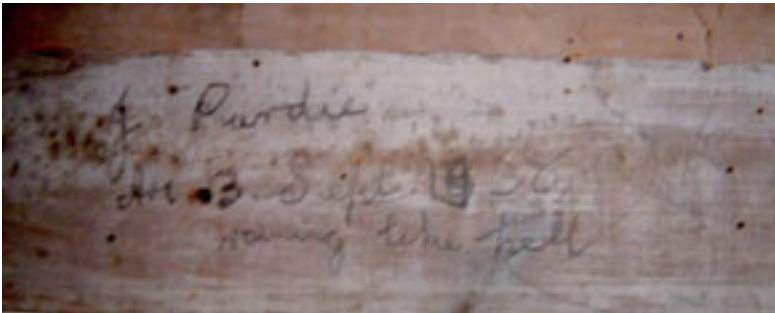 J. Purdie
3 Sept. 1936
raining like hell